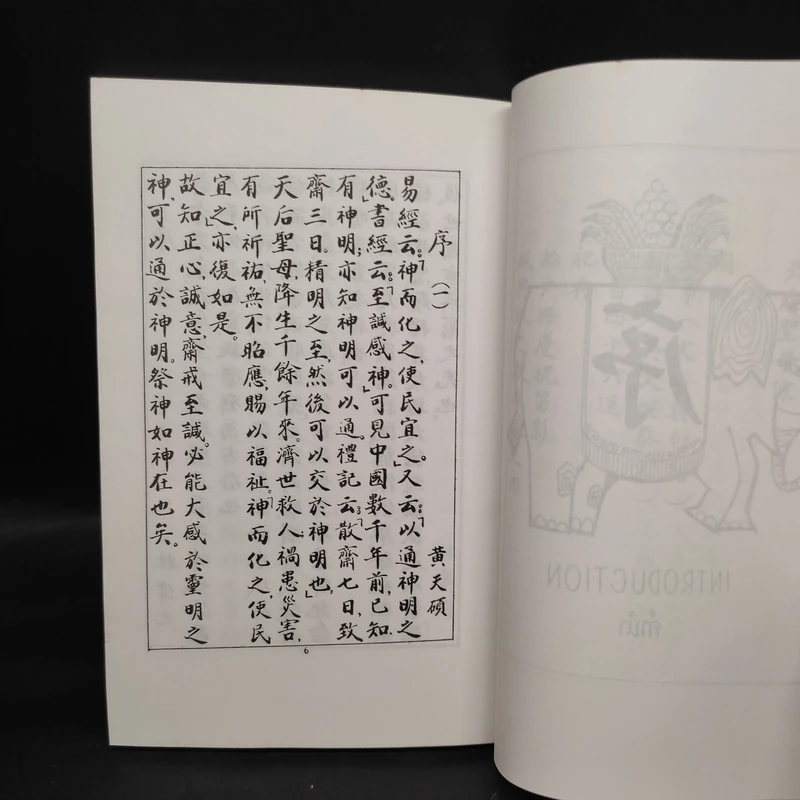 序(一) 黄天碩
易經云:「神而化之,使民宜之。」又云:「以通神明之
德。」書經云:「至誠感神。」可見中國數千年前,已知
有神明;亦知神明可以通。禮記云:「散齋七日,致
齋三日。精明之至,然後可以交於神明也。」
天后聖母,降生千餘年來。濟世救人;禍患災害,
有所祈祐,無不昭應,賜以福祉。「神而化之,使民
宜之」,亦復如是。
故知正心,誠意,齋戒至誠。必能大感於靈明之
神,可以通於神明。祭神如神在也矣。
6
序
INTRODUCTION
คำนำ